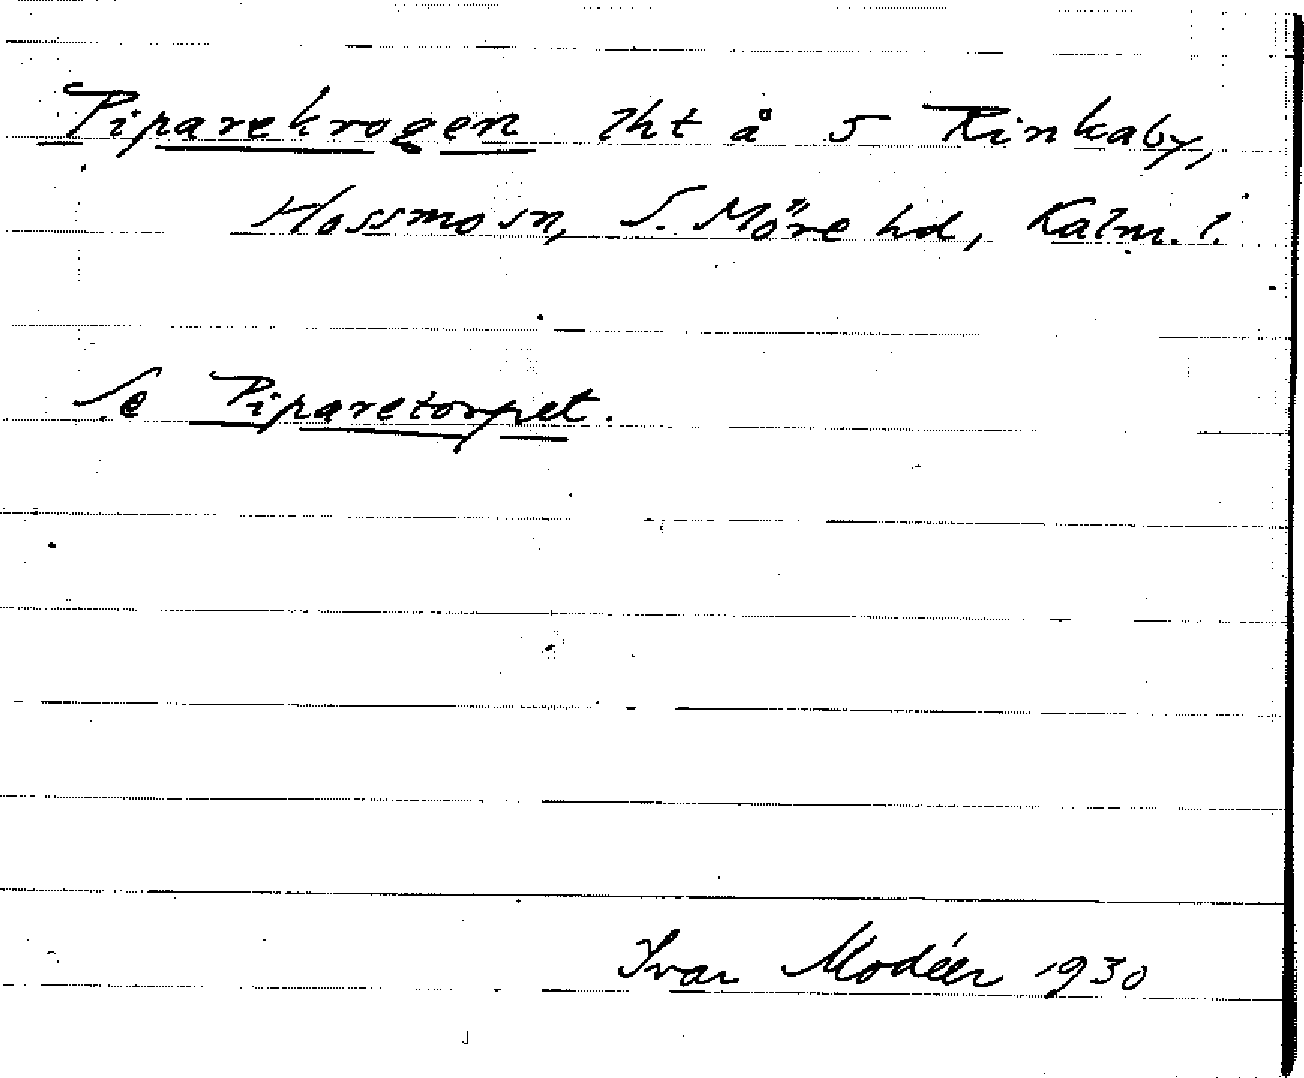 Piparekrogen lht å 5 Rinkaby,
Hossmo sn, S. Möre hd, Kalm. l.
Se Piparetorpet.
Ivar Modéer 1930